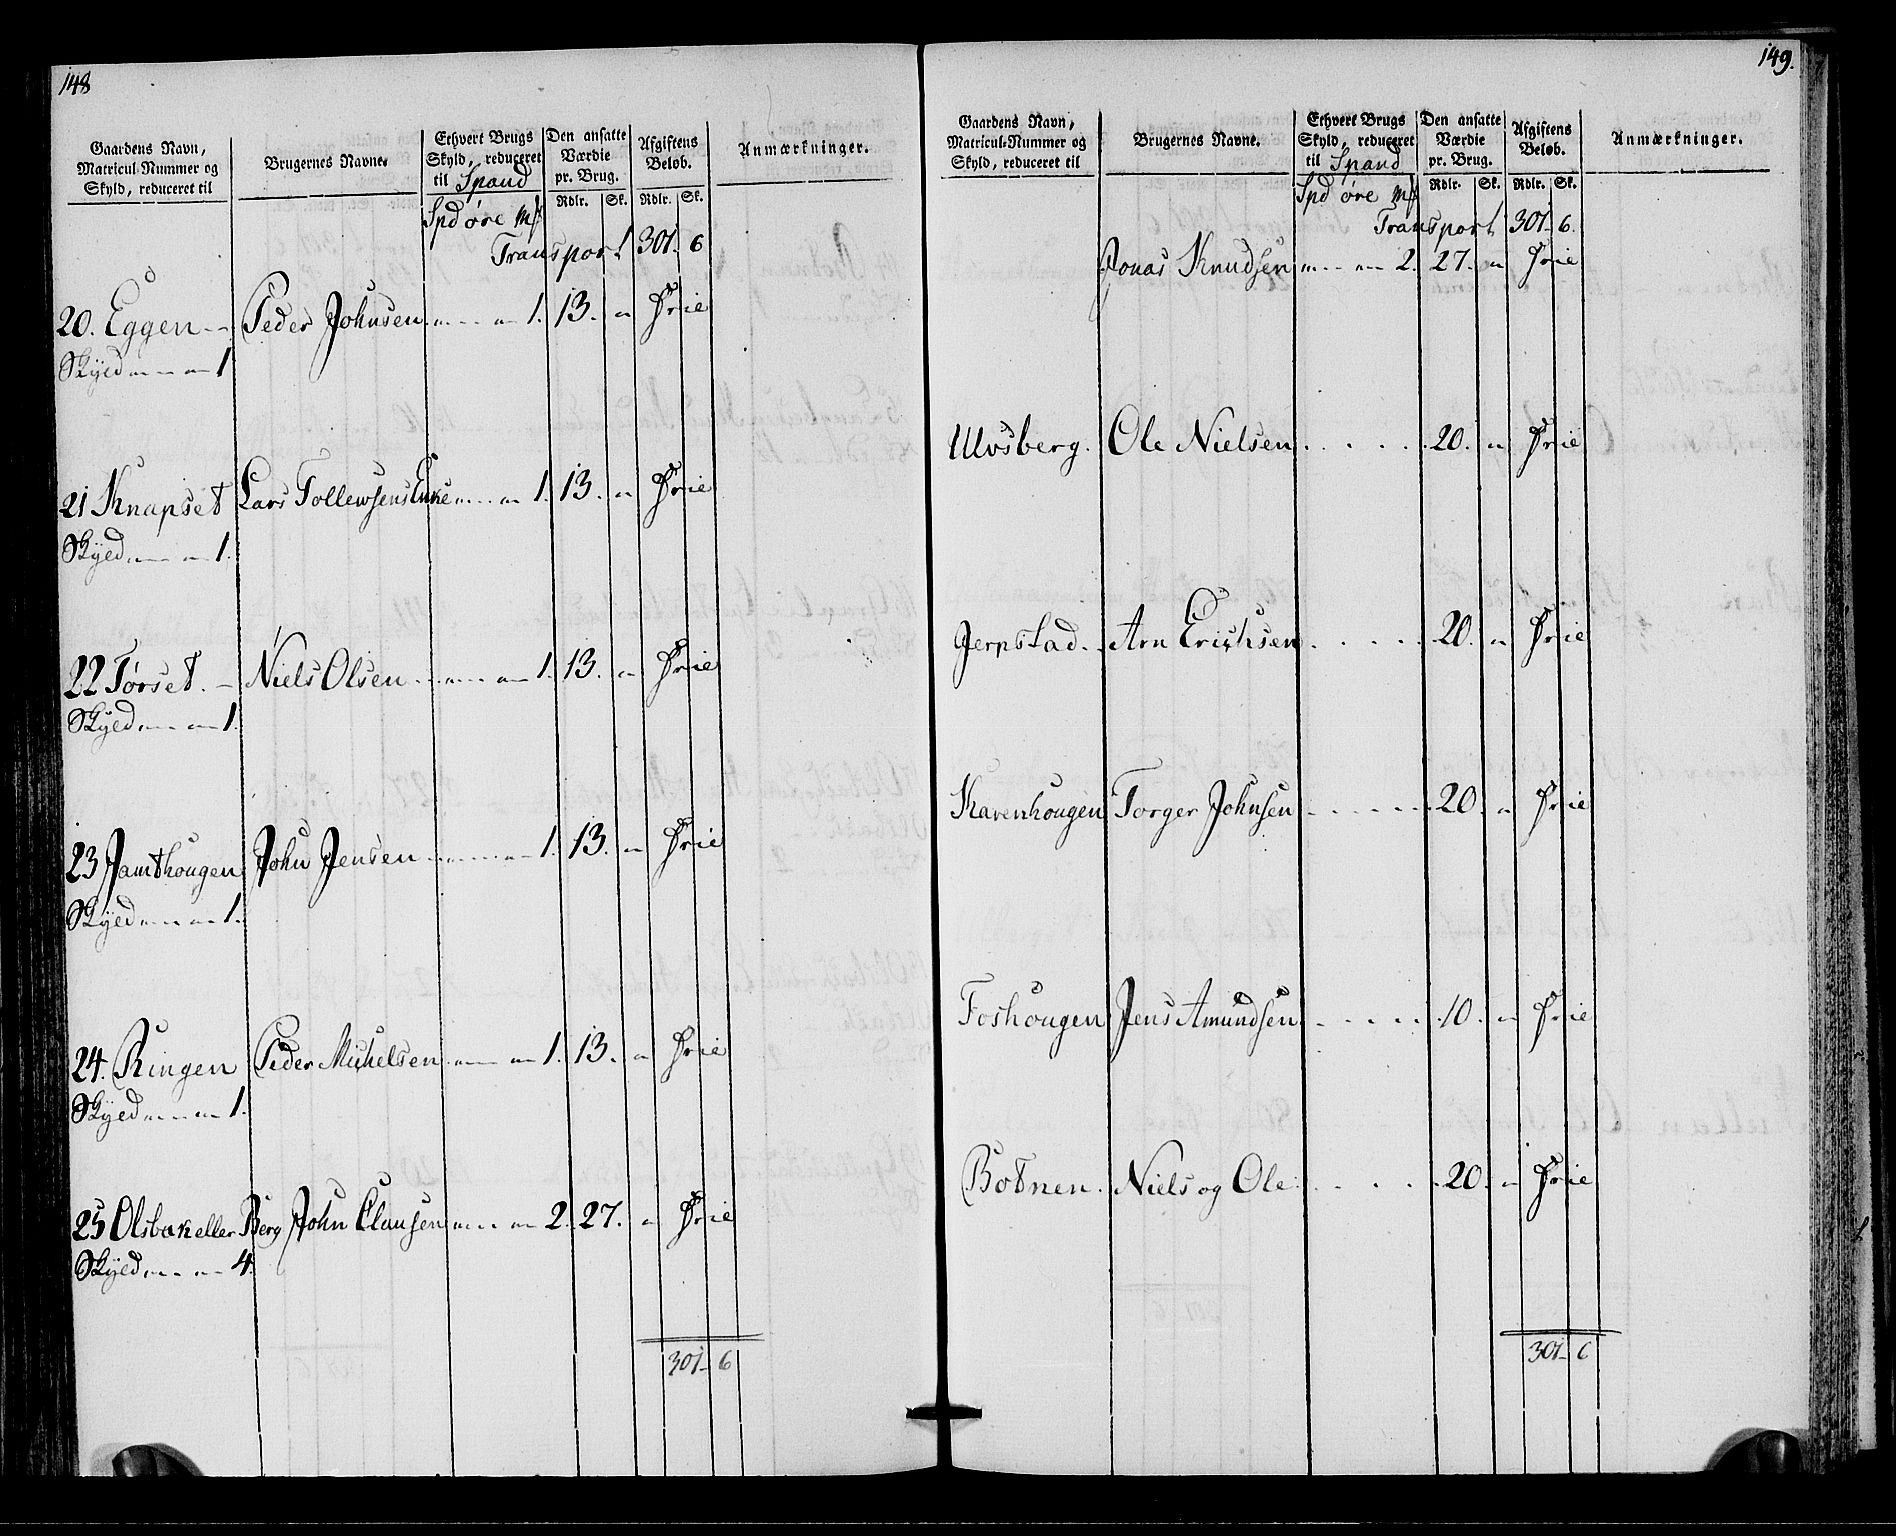 148
Gaardens Navn,
Matricul-Nummer og
Skyld, reduceret til
Brugernes Navne.
Ethvert Brugs
Skyld, reduceret
til Spand
Den ansatte
Værdie
pr. Brug.
Afgiftens
Beløb.
Anmærkninger.
Rdlr. Sk. Rdlr. Sk.
Spd øre
Transport 301 6
20. Eggen Peder Johnsen 1. 13. Frie
Skyld 1
21 Knapset Lars Tollewsens Enke 1. 13. Frie
Skyld 1.
22 Tørset. Niels Olsen 1. 13. Frie
Skyld 1.
23 Jamthougen John Jensen 1. 13. Frie
Skyld 1.
24. Ringen Peder Michelsen 1. 13. Frie
Skyld 1.
25 Olsbak eller Berg John Clausen 2. 27. Frie
Skyld 4.
301 6
149.
Gaardens Navn,
Matricul-Nummer og
Skyld, reduceret til
Brugernes Navne.
Ethvert Brugs
Skyld, reduceret
til Spand
Den ansatte
Værdie
pr. Brug.
Afgiftens
Beløb.
Anmærkninger.
Rdlr. Sk. Rdlr. Sk.
Spd øre
Transport 301 6.
Jonas Knudsen 2. 27. Frie
Ulvsberg. Ole Nielsen 20. Frie
Jerpstad. Arn Erichsen 20. Frie
Ravenhougen Torger Johnsen 20. Frie
Foshougen Jens Amundsen 10. Frie
Botnen. Niels og Ole 20. Frie
301 6